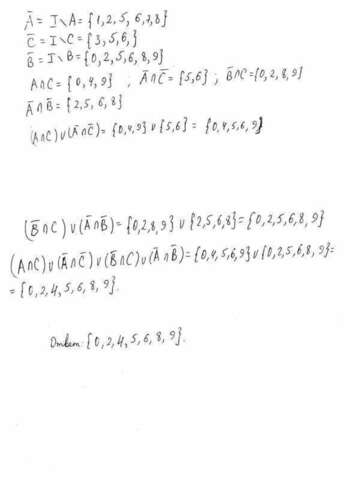 Ā = I∖A = {1, 2, 5, 6, 7, 8}
C̄ = I∖C = {3, 5, 6, }
B̄ = I∖B = {0, 2, 5, 6, 8, 9}
A∩C = {0, 4, 9} ; Ā∩C̄ = {5, 6} ; B̄∩C = {0, 2, 8, 9}
Ā∩B̄ = {2, 5, 6, 8}
(A∩C)∪(Ā∩C̄) = {0, 4, 9}∪{5, 6} = {0, 4, 5, 6, 9}
(B̄∩C)∪(Ā∩B̄) = {0, 2, 8, 9}∪{2, 5, 6, 8} = {0, 2, 5, 6, 8, 9}
(A∩C)∪(Ā∩C̄)∪(B̄∩C)∪(Ā∩B̄) = {0, 4, 5, 6, 9}∪{0, 2, 5, 6, 8, 9} =
= {0, 2, 4, 5, 6, 8, 9}.
Ответ: {0, 2, 4, 5, 6, 8, 9}.